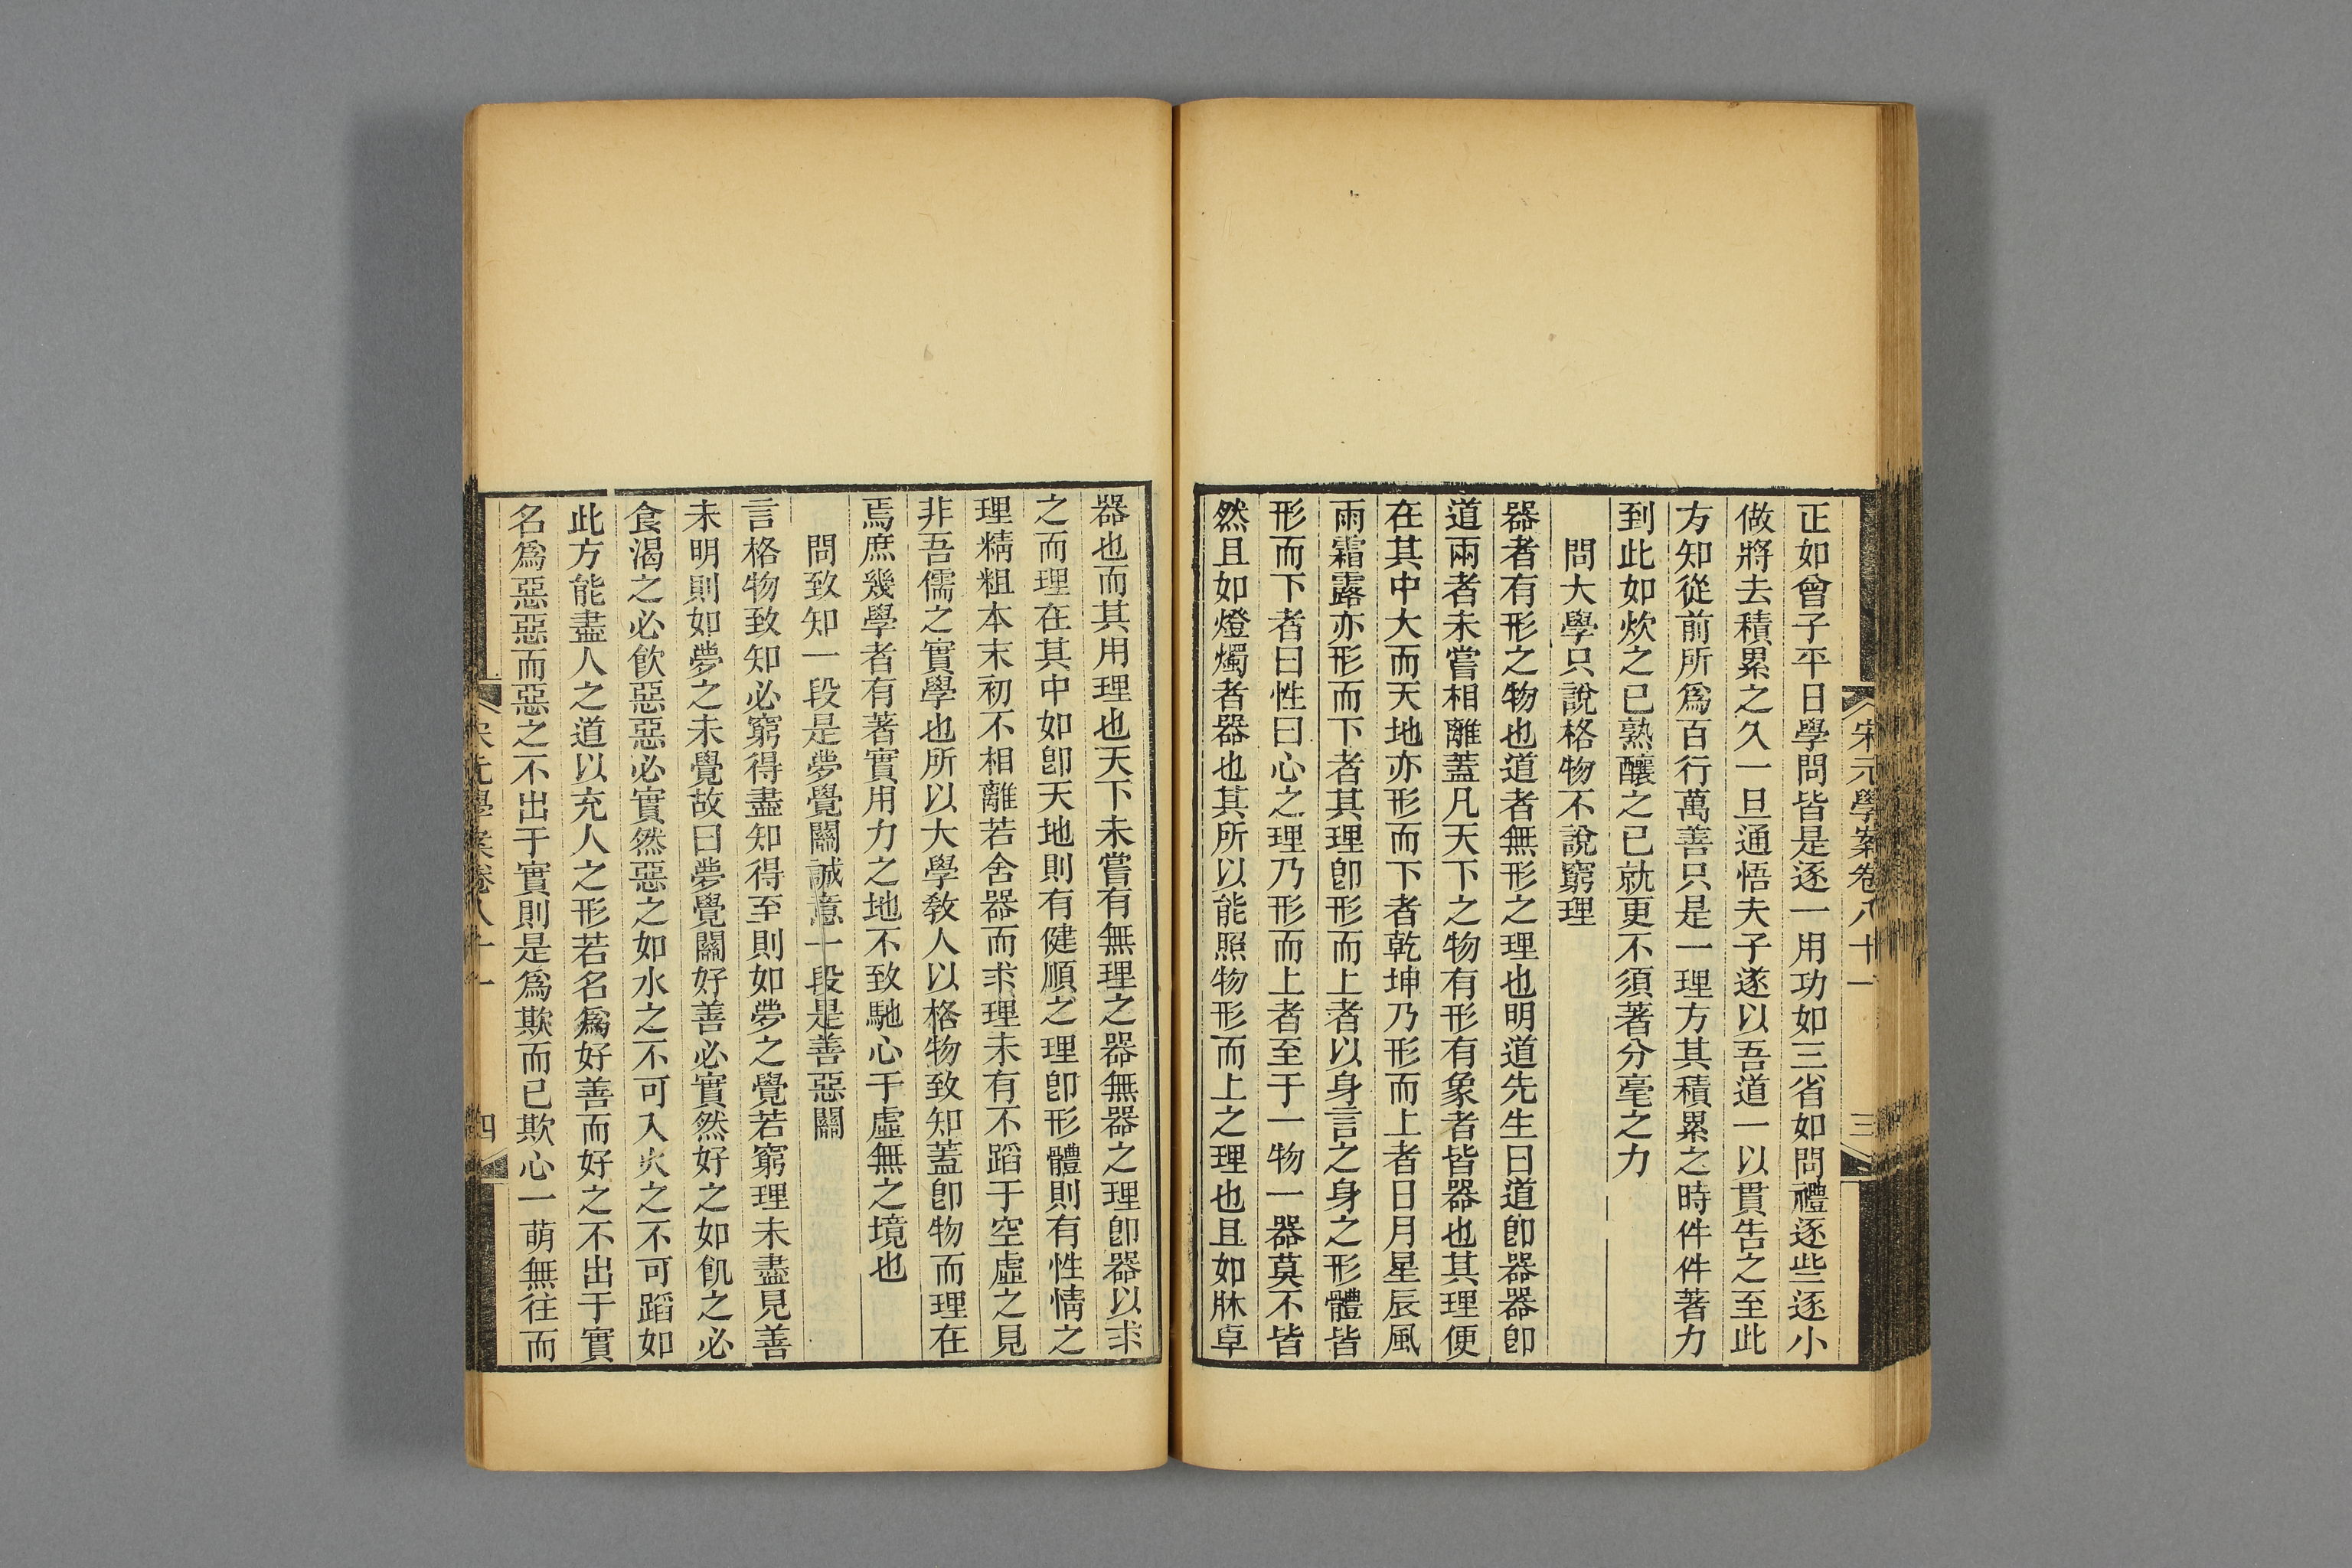 宋元學案卷八十一 三
正如曾子平日學問皆是逐一用功如三省如問禮逐些逐小
做將去積累之久一旦通悟夫子遂以吾道一以貫告之至此
方知從前所爲百行萬善只是一理方其積累之時件件著力
到此如炊之已熟釀之已就更不須著分毫之力
問大學只說格物不說窮理
器者有形之物也道者無形之理也明道先生曰道卽器器卽
道兩者未嘗相離蓋凡天下之物有形有象者皆器也其理便
在其中大而天地亦形而下者乾坤乃形而上者日月星辰風
雨霜露亦形而下者其理卽形而上者以身言之身之形體皆
形而下者曰性曰心之理乃形而上者至于一物一器莫不皆
然且如燈燭者器也其所以能照物形而上之理也且如牀卓
器也而其用理也天下未嘗有無理之器無器之理卽器以求
之而理在其中如卽天地則有健順之理卽形體則有性情之
理精粗本末初不相離若舍器而求理未有不蹈于空虛之見
非吾儒之實學也所以大學敎人以格物致知蓋卽物而理在
焉庶幾學者有著實用力之地不致馳心于虛無之境也
問致知一段是夢覺關誠意一段是善惡關
言格物致知必窮得盡知得至則如夢之覺若窮理未盡見善
未明則如夢之未覺故曰夢覺關好善必實然好之如飢之必
食渴之必飮惡惡必實然惡之如水之不可入火之不可蹈如
此方能盡人之道以充人之形若名爲好善而好之不出于實
名爲惡惡而惡之不出于實則是爲欺而已欺心一萌無往而
宋元學案卷八十一 四